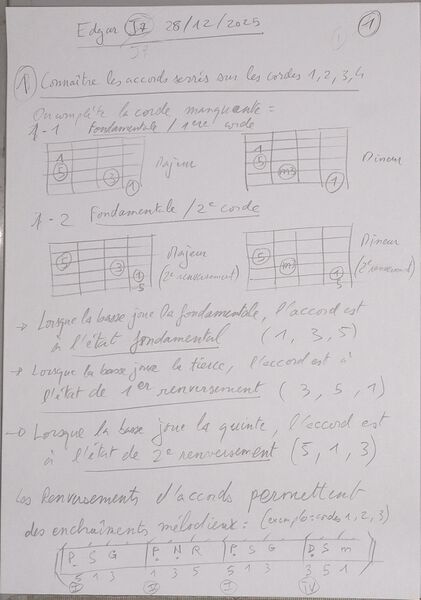 Edgar J7 28/12/2025 1
J7
1) Connaître les accords serrés sur les cordes 1, 2, 3, 4
On complète la corde manquante =
1-1 Fondamentale / 1ere corde
1 5 3 1 Majeur 1 5 m3 1 Mineur
1-2 Fondamentale / 2e corde
5 3 1 5 Majeur (2e renversement) 5 m3 1 5 Mineur (2e renversement)
→ Lorsque la basse joue la fondamentale, l'accord est
à l'état fondamental (1, 3, 5)
→ Lorsque la basse joue la tierce, l'accord est à
l'état de 1er renversement (3, 5, 1)
→ Lorsque la basse joue la quinte, l'accord est
à l'état de 2e renversement (5, 1, 3)
Les Renversements d'accords permettent
des enchaîments mélodieux = (exemple = cordes 1, 2, 3)
P S G P N R P S G D S m
5 1 3 1 3 5 5 1 3 3 5 1
I I IV